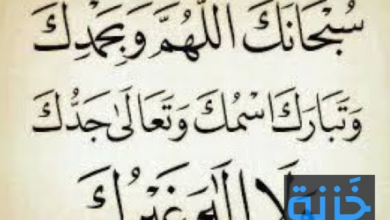 سُبْحَانَكَ اللَّهُمَّ وَبِحَمْدِكَ
وَتَبَارَكَ اسْمُكَ وَتَعَالَىٰ جَدُّكَ
وَلَا إِلَٰهَ غَيْرُكَ
خَزنة